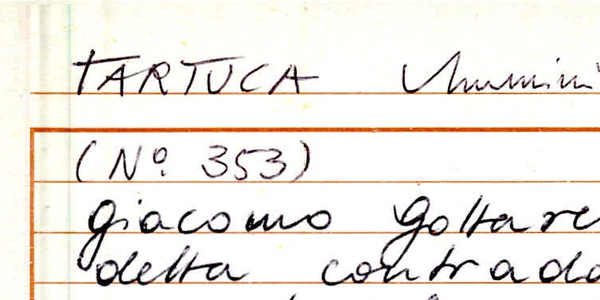 TARTUCA
(Nº. 353)
giacomo Goltare
detta contrada